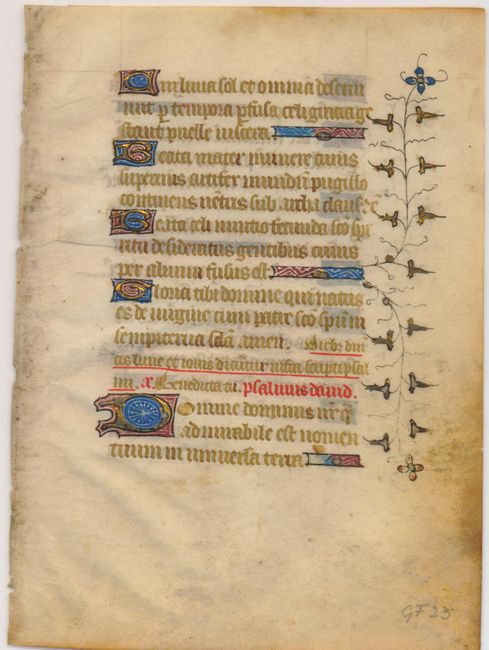 Cui luna sol et omnia deserui
unt p tempora pfusa celi gracia ge
stant puelle uiscera
Beata mater munere cuius
supernus artifex mundū pugillo
continens uētris sub archa clausꝰ ē
Beata celi nuntio fecunda sco spi
ritu desideratus gentibus cuius
per aluum fusus est
Gloria tibi domine qui natus
es de uirgine cum patre sco spiritu in
sempiterna secla amen. Diebꝰ dni
cis lune et iouis dicūtur infra scripti psal
mi. a. Benedicta tu. psalmus dauid.
Domine dominus nr q̄
admirabile est nomen
tuum in uniuersa terra
GF 23